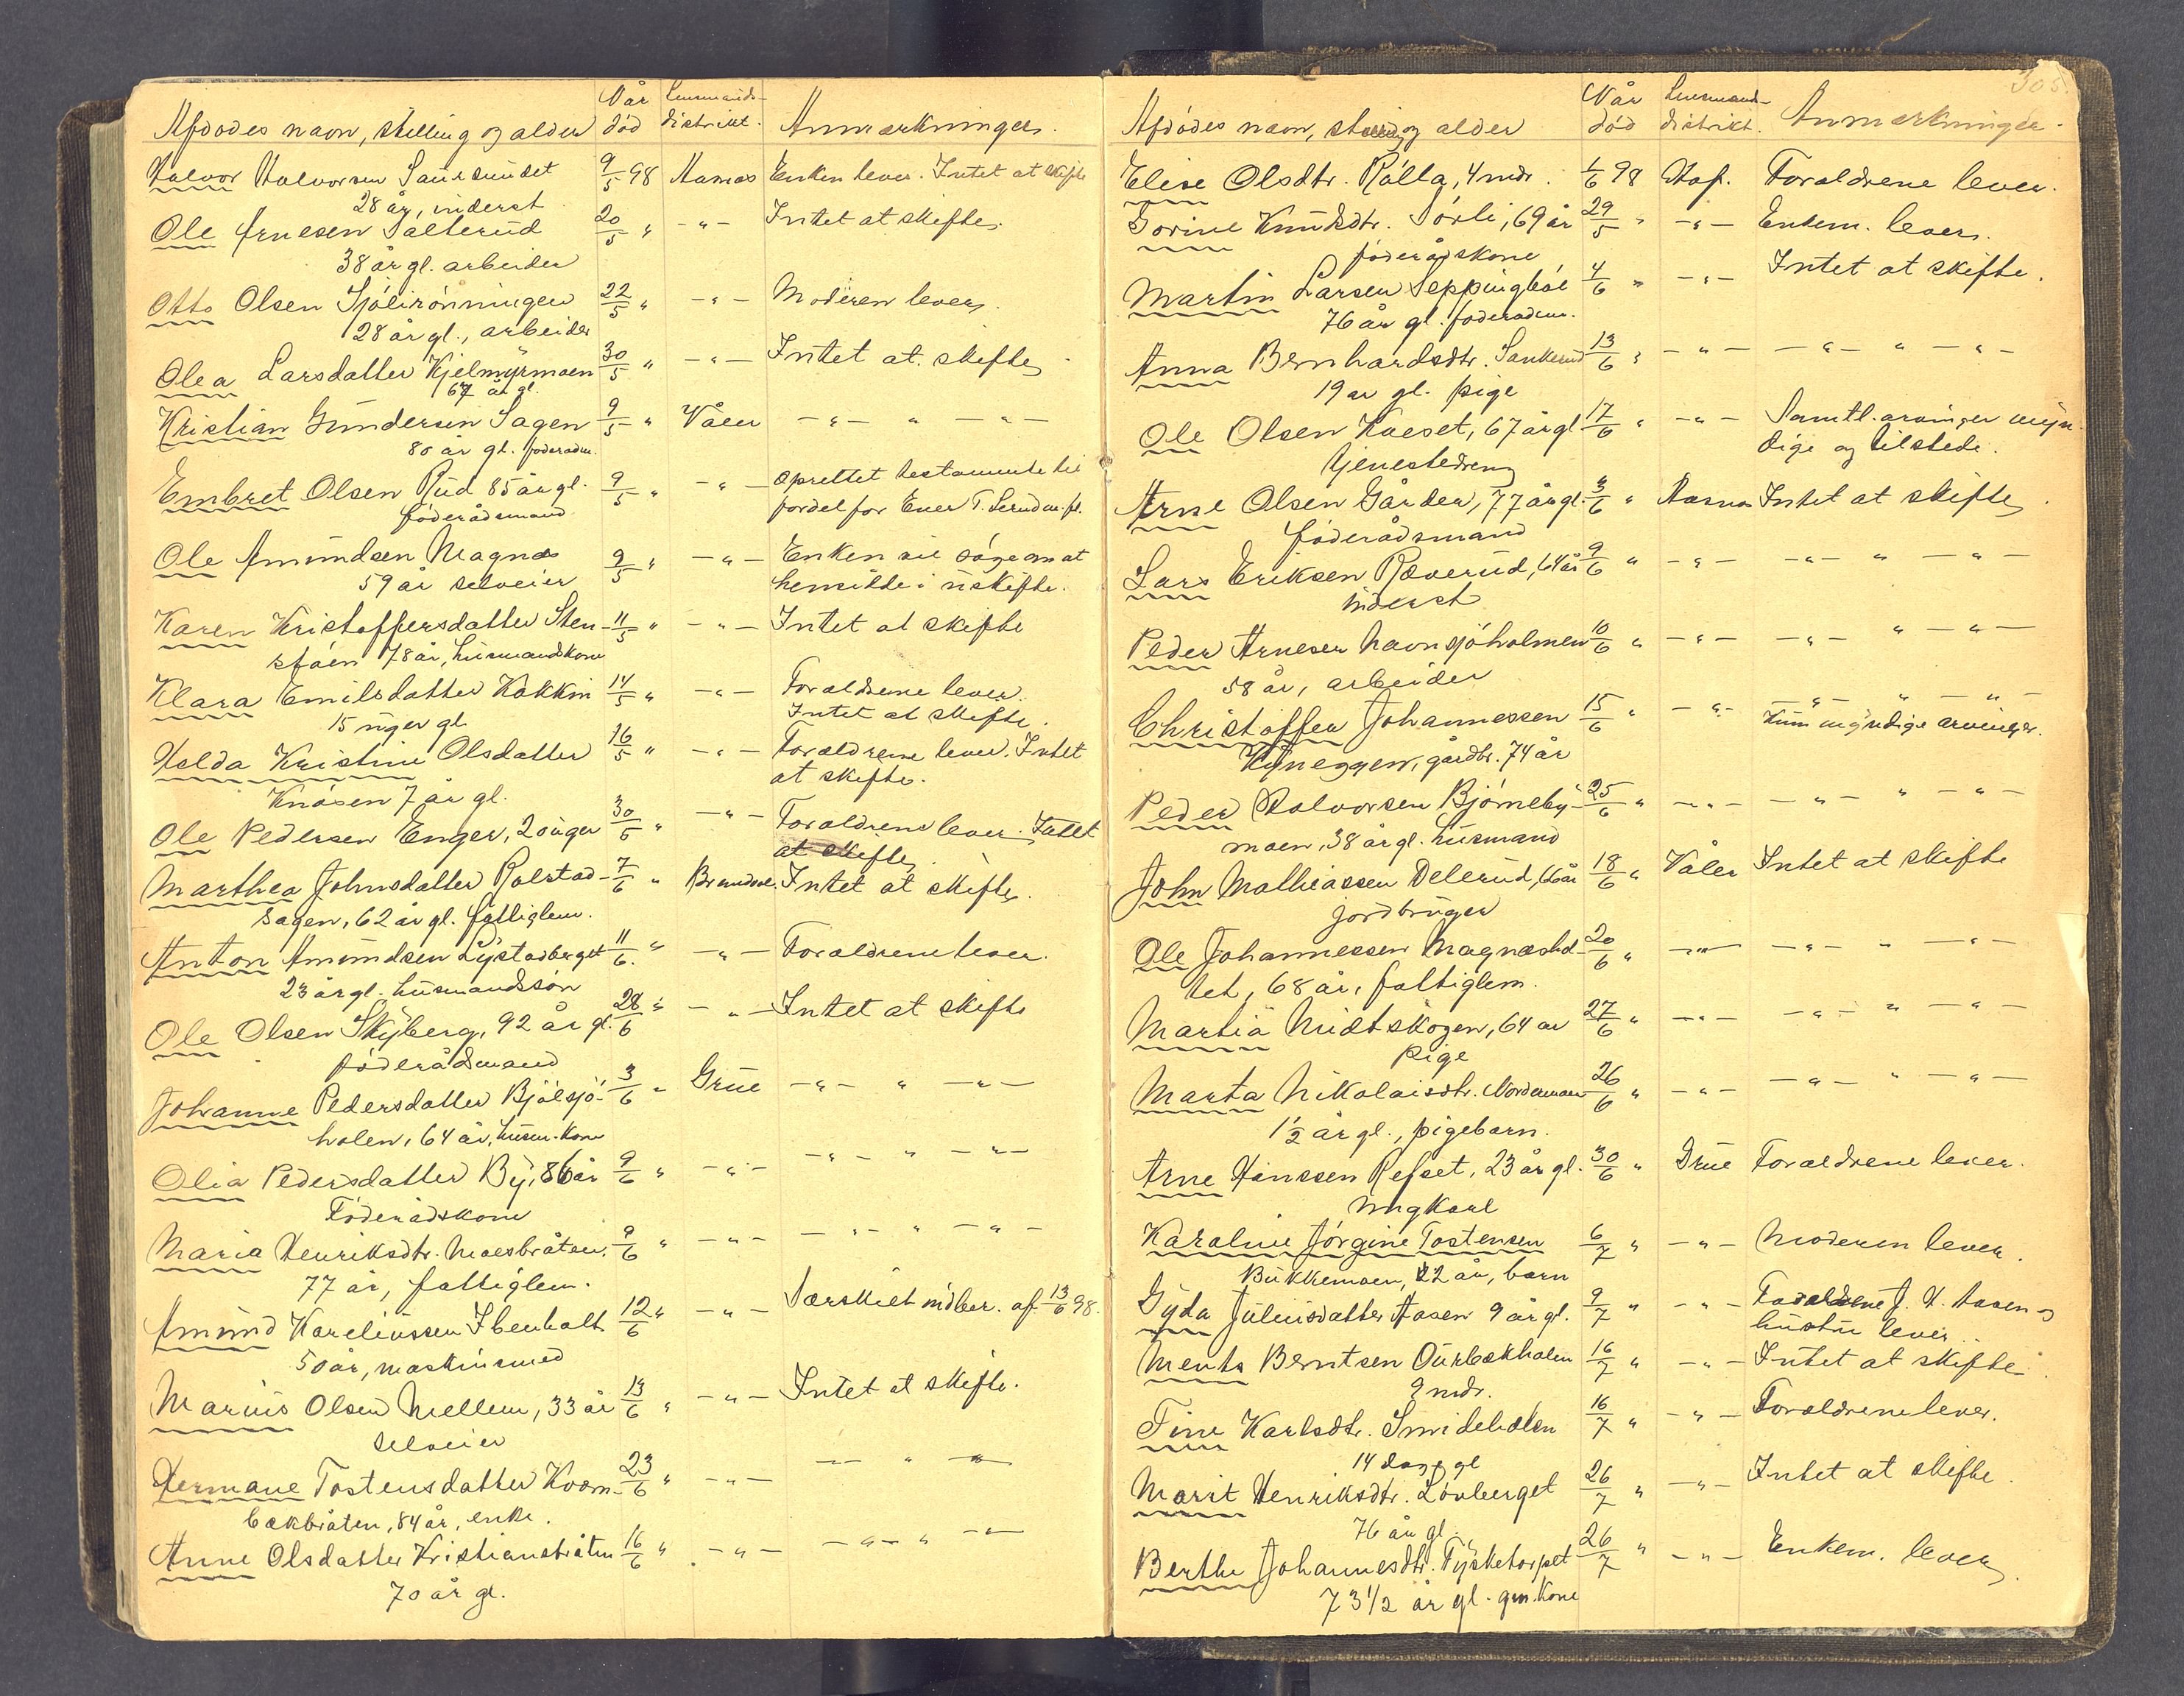 Afdødes navn, stilling og alder | Når død | Lensmands-distrikt. | Anmærkninger.
Halvor Halvorsen Sauesundet | 9/5 98 | Aasnes | Enken lever. Intet at skifte
28 år, inderst
Ole Arnesen Sætterud | 20/5 " | -"- | Intet at skifte.
38 år gl. arbeider
Otto Olsen Sjölirönningen | 22/5 " | -"- | Moderen lever.
28 år gl., arbeider
Olea Larsdatter Kjelmyrmoen | 30/5 " | -"- | Intet at skifte
67 år gl.
Kristian Gundersen Sagen | 9/5 " | Våler | -"- " -"-
80 år gl. föderådm.
Embret Olsen Rud 85 år gl. | 9/5 " | -"- | Oprettet testamente til
föderådsmand | fordel for Ener T.
Ole Amundsen Magnæs | 9/5 " | -"- | Enken vil söge om at
59 år selveier | hensidde i uskifte.
Karen Kristoffersdatter Sten- | 11/5 " | -"- | Intet at skifte
78 år, husmandskone
Klara Emilsdatter Kakkin | 14/5 " | -"- | Forældrene lever.
15 uger gl. | Intet at skifte.
Halda Kristine Olsdatter | 16/5 " | -"- | Forældrene lever. Intet
Knåsen 7 år gl. | at skifte.
Ole Pedersen Enger, 20 uger | 30/5 " | -"- | Forældrene lever. Intet
at skifte.
Marthea Johnsdatter Rolstad- | 7/6 " | Brandval. | Intet at skifte.
sagen, 62 år gl. fattiglem.
Anton Amundsen Lystadberget | 11/6. " | -"- | Forældrene lever.
23 år gl. husmandssön
Ole Olsen Skyberg, 92 år gl. | 28/6 " | -"- | Intet at skifte
föderådsmand
Johanne Pedersdatter Bjölsjö- | 3/6 " | Grue | -"- " -"-
holen, 64 år, husm.kone
Olia Pedersdatter By, 86 år | 9/6 " | -"- | -"- " -"-
Föderådskone
Maria Henriksdtr. Moesbråten, | 9/6 " | -"- | -"- " -"-
77 år, fattiglem.
Amund Kareliussen Ibenholt | 12/6 " | -"- | Særskilt indber. af 13/6 98.
50 år, maskinsmed
Marius Olsen Mellem, 33 år | 13/6 " | -"- | Intet at skifte.
selveier
Hermane Tostensdatter Kvæn- | 23/6 " | -"- | -"- " -"-
bækbråten, 84 år, enke.
Anne Olsdatter Kristiansbråten | 16/6 " | -"- | -"- " -"-
70 år gl.
305.
Afdödes navn, stilling og alder | Når död | Lensmands-distrikt. | Anmærkninger.
Elise Olsdtr. Rålta, 4 mdr. | 1/6 98 | Hof. | Forældrene lever.
Gorine Knudsdtr. Sörli, 69 år | 29/5 " | -"- | Enkem. lever.
föderådskone
Martin Larsen Seppingböl | 4/6 " | -"- | Intet at skifte.
76 år gl. föderådm.
Anna Bernhardsdtr. Sankerud | 13/6 " | -"- | -"- " -"-
19 år gl. pige
Ole Olsen Kveset, 67 år gl. | 17/6 " | -"- | Samtl. arvinger myn-
tjenestedreng | dige og tilstede.
Arne Olsen Gården, 77 år gl. | 3/6 " | Aasnes | Intet at skifte
föderådsmand
Lars Eriksen Ræverud, 64 år | 9/6 " | -"- | -"- " -"-
inderst
Peder Arnesen Navnsjöholmen | 10/6 " | -"- | -"- " -"-
58 år, arbeider
Christoffer Johannessen | 15/6 " | -"- | -"- " -"-
Kyneggen, gårdbr. 74 år | Kun myndige arvinger.
Peder Halvorsen Björneby- | 25/6 " | -"- | -"- " -"-
moen, 38 år gl. husmand
John Mathiassen Delerud, 66 år | 18/6 " | Våler | Intet at skifte
jordbruger
Ole Johannessen Magnæshol- | 20/6 " | -"- | -"- " -"-
tet, 68 år, fattiglem.
Martia Midtskogen, 64 år | 27/6 " | -"- | -"- " -"-
pige
Marta Nikolaisdtr. Nordermoen | 26/6 " | -"- | -"- " -"-
1½ år gl., pigebarn.
Arne Hanssen Refset, 23 år gl. | 30/6 " | Grue | Forældrene lever.
ungkarl
Karoline Jörgine Tostensen | 6/7 " | -"- | Moderen lever.
Bukkemoen, 12 år, barn
Gyda Juliusdatter Aasen 9 år gl. | 9/7 " | -"- | Forældrene J. H. Aasen og
hustru lever.
Mentz Berntsen Ourbækholen | 16/7 " | -"- | Intet at skifte
9 mdr.
Tine Karlsdtr. Smideholen | 16/7 " | -"- | Forældrene lever.
14 dage gl
Marit Henriksdtr. Lövberget | 26/7 " | -"- | Intet at skifte.
76 år gl.
Berthe Johannesdtr. Tysketorpet | 26/7 " | -"- | Enkem. lever.
73 1/2 år gl. gm. kone